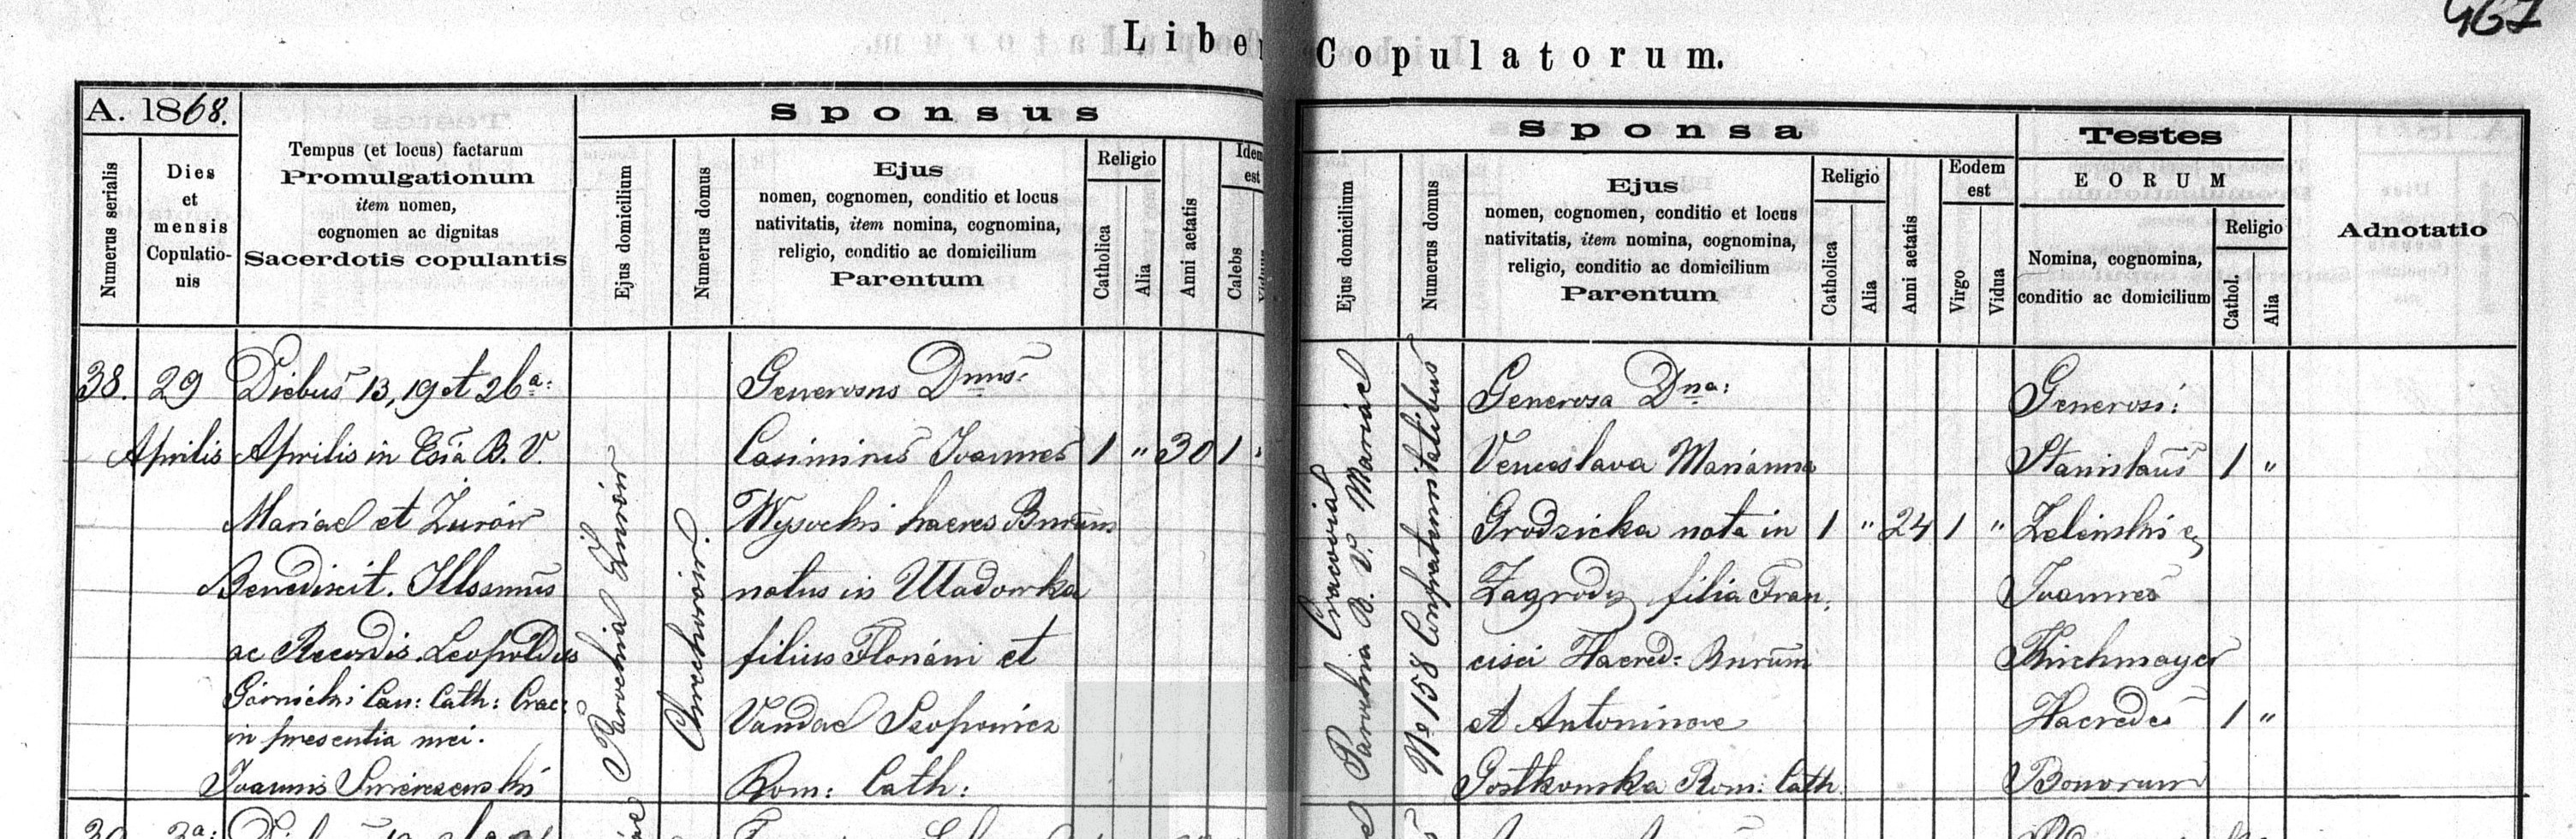 467
Liber Copulatorum.
A. 1868.
Numerus serialis
Dies
et
mensis
Copulatio-
nis
Tempus (et locus) factarum
Promulgationum
item nomen,
cognomen ac dignitas
Sacerdotis copulantis
Sponsus
Ejus domicilium
Numerus domus
Ejus
nomen, cognomen, conditio et locus
nativitatis, item nomina, cognomina,
religio, conditio ac domicilium
Parentum
Religio
Catholica
Alia
Anni aetatis
Idem
est
Calebs
Sponsa
Ejus domicilium
Numerus domus
Ejus
nomen, cognomen, conditio et locus
nativitatis, item nomina, cognomina,
religio, conditio ac domicilium
Parentum
Religio
Catholica
Alia
Anni aetatis
Eodem
est
Virgo
Vidua
Testes
EORUM
Nomina, cognomina,
conditio ac domicilium
Religio
Cathol.
Alia
Adnotatio
38.
29
Aprilis
Diebus 13, 19 et 26a:
Aprilis in Esia B. V.
Mariae et Żurów
Benedixit. Illssmus
ac Recondis. Leopoldus
Górnicki Can: Cath: Crac:
in presentia mei.
Joannis
Parochia Żurów
Generosus Dnus:
Casimirus Joannes
Wysocki haeres Bnrum
natus in Uladowka
filius Floriani et
Vandae
Rom: Cath:
1 " 30 1
Cracoviae
Parochia B. V. Mariae
No 158 Confraternitatibus
Generosa Dna:
Venceslava Marianna
Grodzicka nata in
Zagrody filia Fran,
cisci Haered: Bnrum
et Antoninae
Gostkowska Rom: Cath.
1 " 24 1 "
Generosi:
Stanislaus
Zeleński &
Joannes
Kirchmayer
Haeredes
Bonorum
1 "
1 "